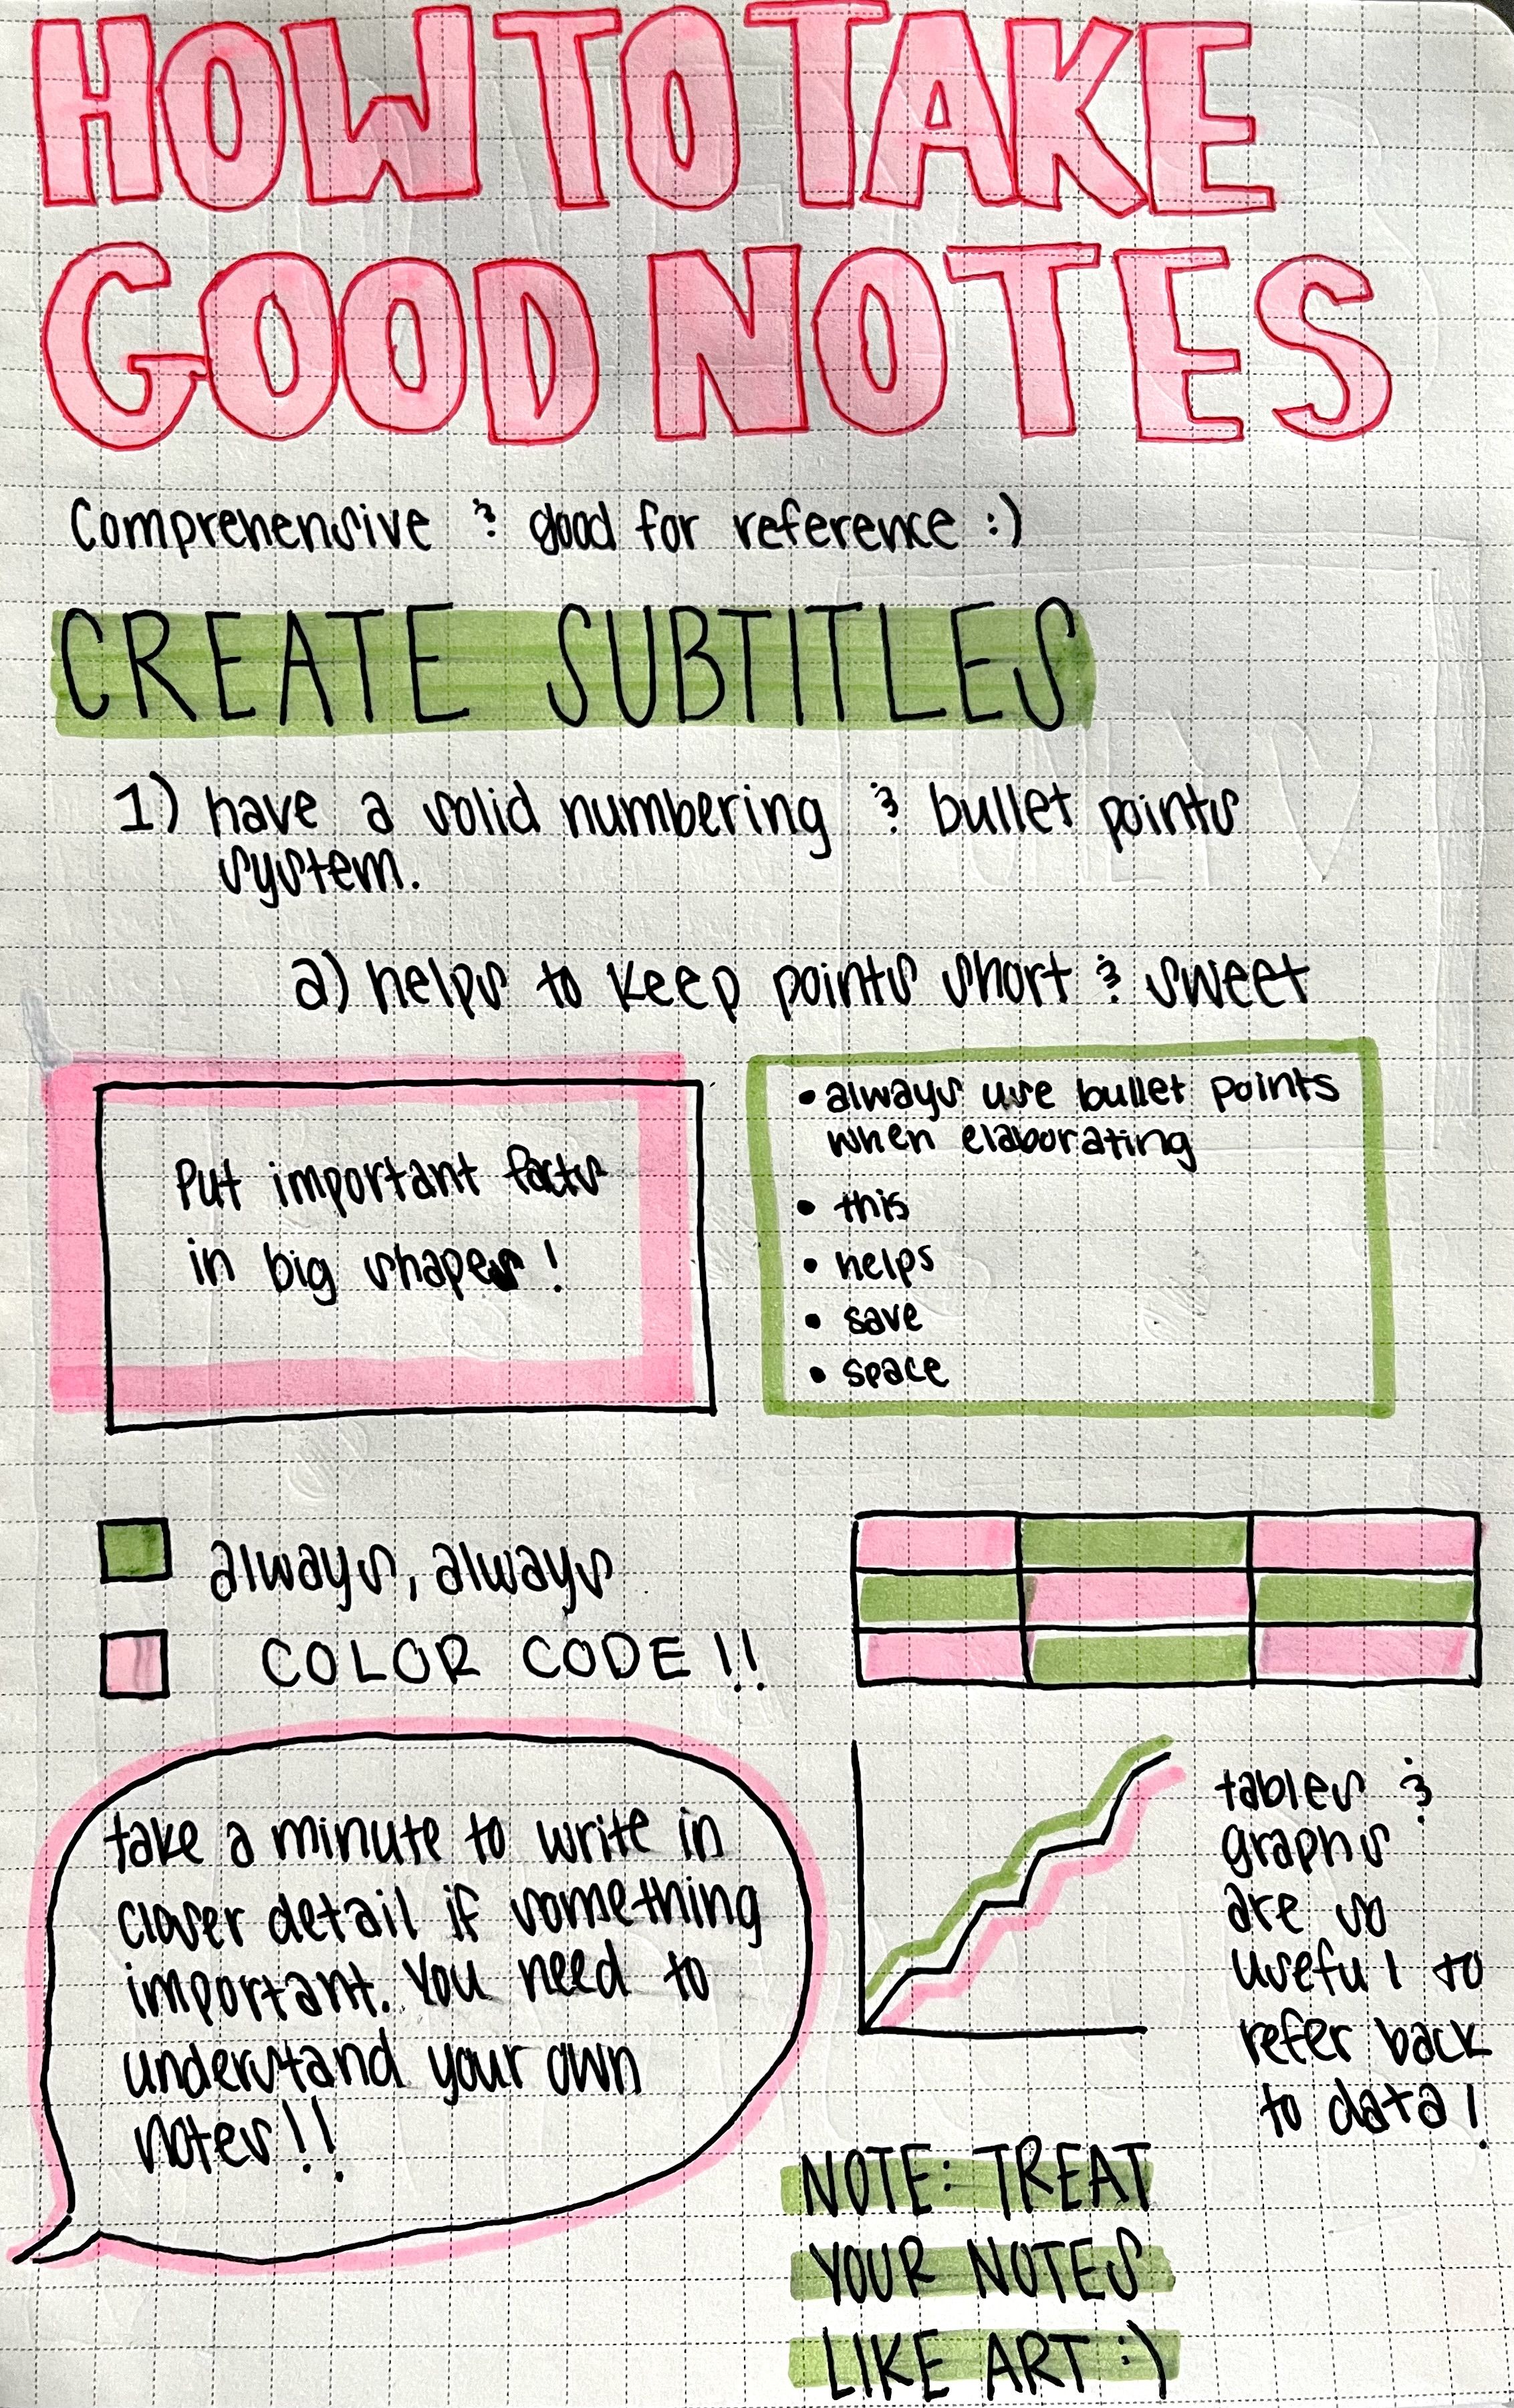 HOW TO TAKE
GOOD NOTES
Comprehensive & good for reference :)
CREATE SUBTITLES
1) have a solid numbering & bullet points
system.
a) helps to keep points short & sweet
Put important facts
in big shapes!
• always use bullet points
when elaborating
• this
• helps
• save
• space
always, always
COLOR CODE!!
take a minute to write in
closer detail if something
important. You need to
understand your own
notes!!
tables &
graphs
are so
useful to
refer back
to data!
NOTE: TREAT
YOUR NOTES
LIKE ART :)